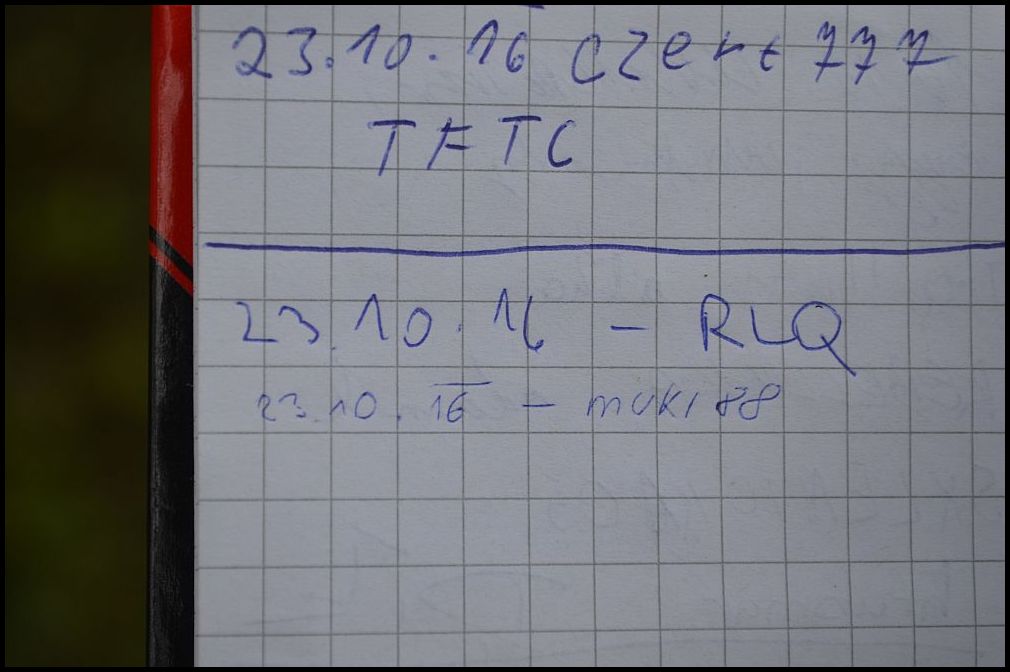 23.10.16 czert777
TFTC
23.10.16 - RLQ
23.10.16 - muki88